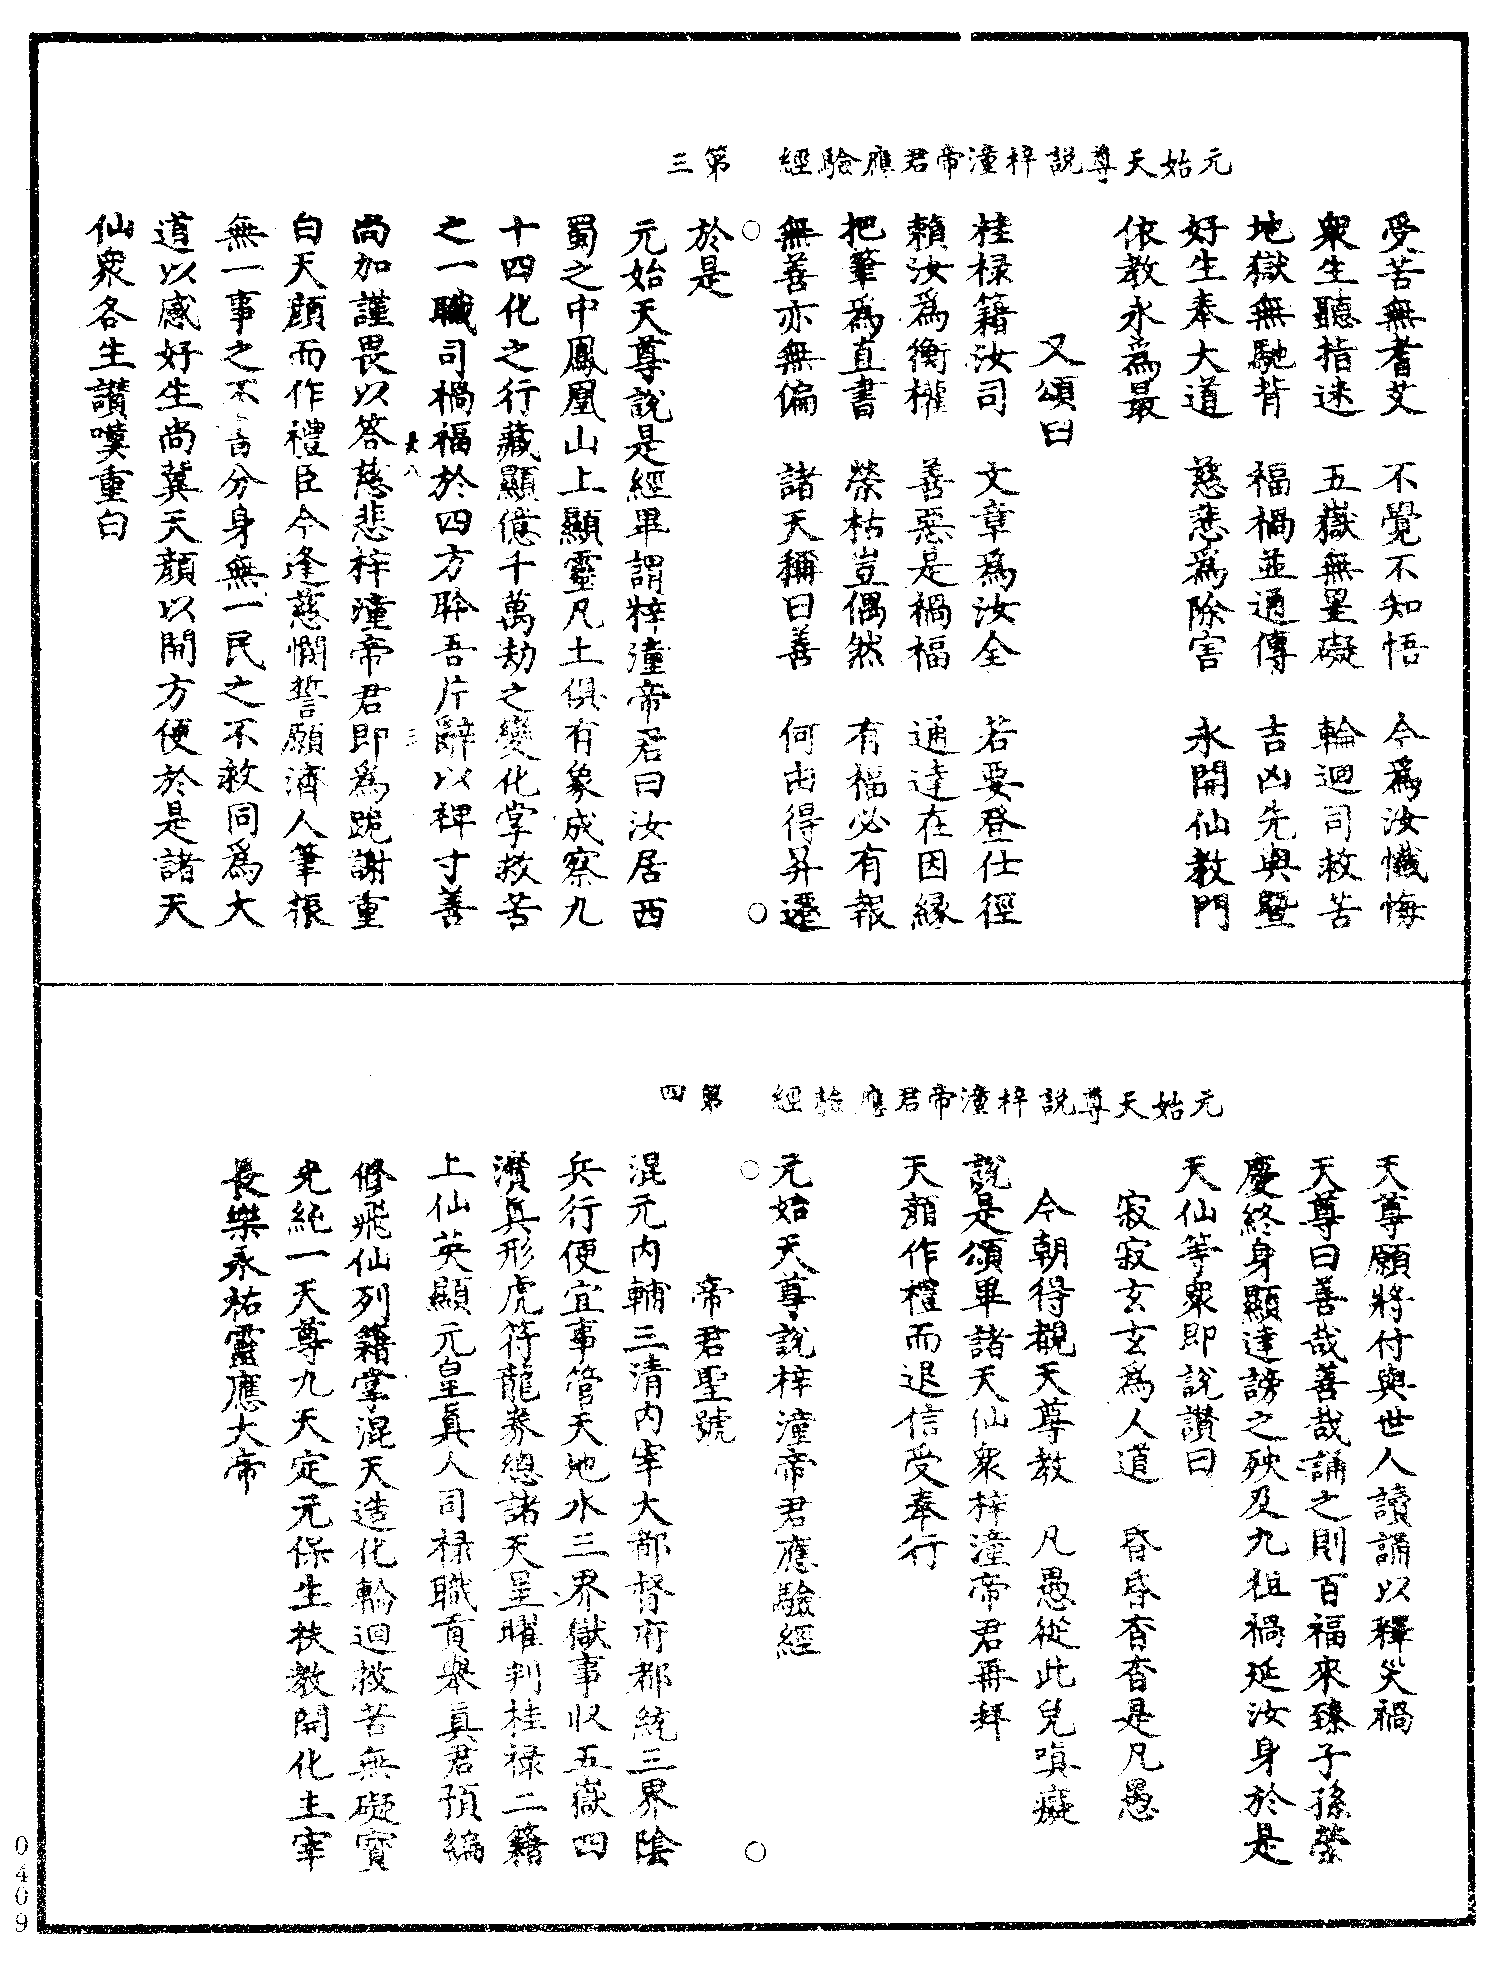 元始天尊說梓潼帝君應驗經　第三
受苦無耆艾　不覺不知悟　今爲汝懺悔
衆生聽指迷　五嶽無罣礙　輪迴司救苦
地獄無馳背　福禍並通傳　吉凶先與暨
好生奉大道　慈悲爲除害　永開仙教門
依教永爲最
又頌曰
桂祿籍汝司　文章爲汝全　若要登仕徑
賴汝爲衡權　善惡是禍福　通達在因緣
把筆爲直書　榮枯豈偶然　有福必有報
無善亦無偏　諸天稱曰善　何由得昇遷
○　○
於是
元始天尊說是經畢謂梓潼帝君曰汝居西
蜀之中鳳凰山上顯靈凡土俱有象成察九
十四化之行藏顯億千萬劫之變化掌救苦
之一職司禍福於四方聆吾片辭以稗寸善
尚加謹畏以答慈悲梓潼帝君即爲跪謝重
白天顏而作禮臣今逢慈憫誓願濟人筆振
無一事之不言分身無一民之不救同爲大
道以感好生尚冀天顏以開方便於是諸天
仙衆各生讚嘆重白
元始天尊說梓潼帝君應驗經　第四
天尊願將付與世人讀誦以釋災禍
天尊曰善哉善哉誦之則百福來臻子孫榮
慶終身顯達謗之殃及九祖禍延汝身於是
天仙等衆即說讚曰
寂寂玄玄爲人道　昏昏杳杳是凡愚
今朝得覩天尊教　凡愚從此免嗔癡
說是頌畢諸天仙衆梓潼帝君再拜
天顏作禮而退信受奉行
元始天尊說梓潼帝君應驗經
○　○
帝君聖號
混元內輔三清內宰大都督府都統三界陰
兵行便宜事管天地水三界獄事收五嶽四
瀆真形虎符龍券總諸天星曜判桂祿二籍
上仙英顯元皇真人司祿職貢舉真君預編
修飛仙列籍掌混天造化輪迴救苦無礙寶
光純一天尊九天定元保生扶教開化主宰
長樂永祐靈應大帝
0409